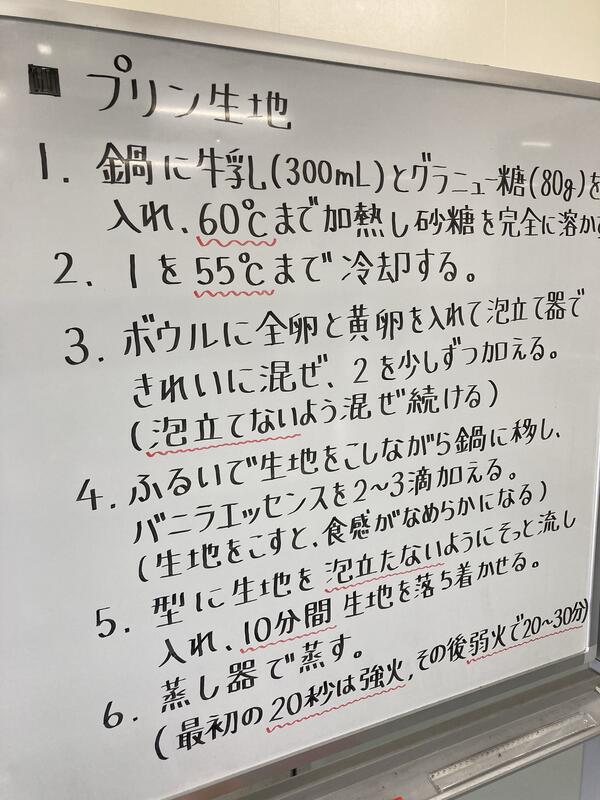 ■ プリン生地
1. 鍋に牛乳(300mL)とグラニュー糖(80g)を
入れ、60℃まで加熱し砂糖を完全に溶かす
2. 1を55℃まで冷却する。
3. ボウルに全卵と黄卵を入れて泡立て器で
きれいに混ぜ、2を少しずつ加える。
(泡立てないよう混ぜ続ける)
4. ふるいで生地をこしながら鍋に移し、
バニラエッセンスを2〜3滴加える。
(生地をこすと、食感がなめらかになる)
5. 型に生地を泡立たないようにそっと流し
入れ、10分間生地を落ち着かせる。
6. 蒸し器で蒸す。
(最初の20秒は強火,その後弱火で20〜30分)